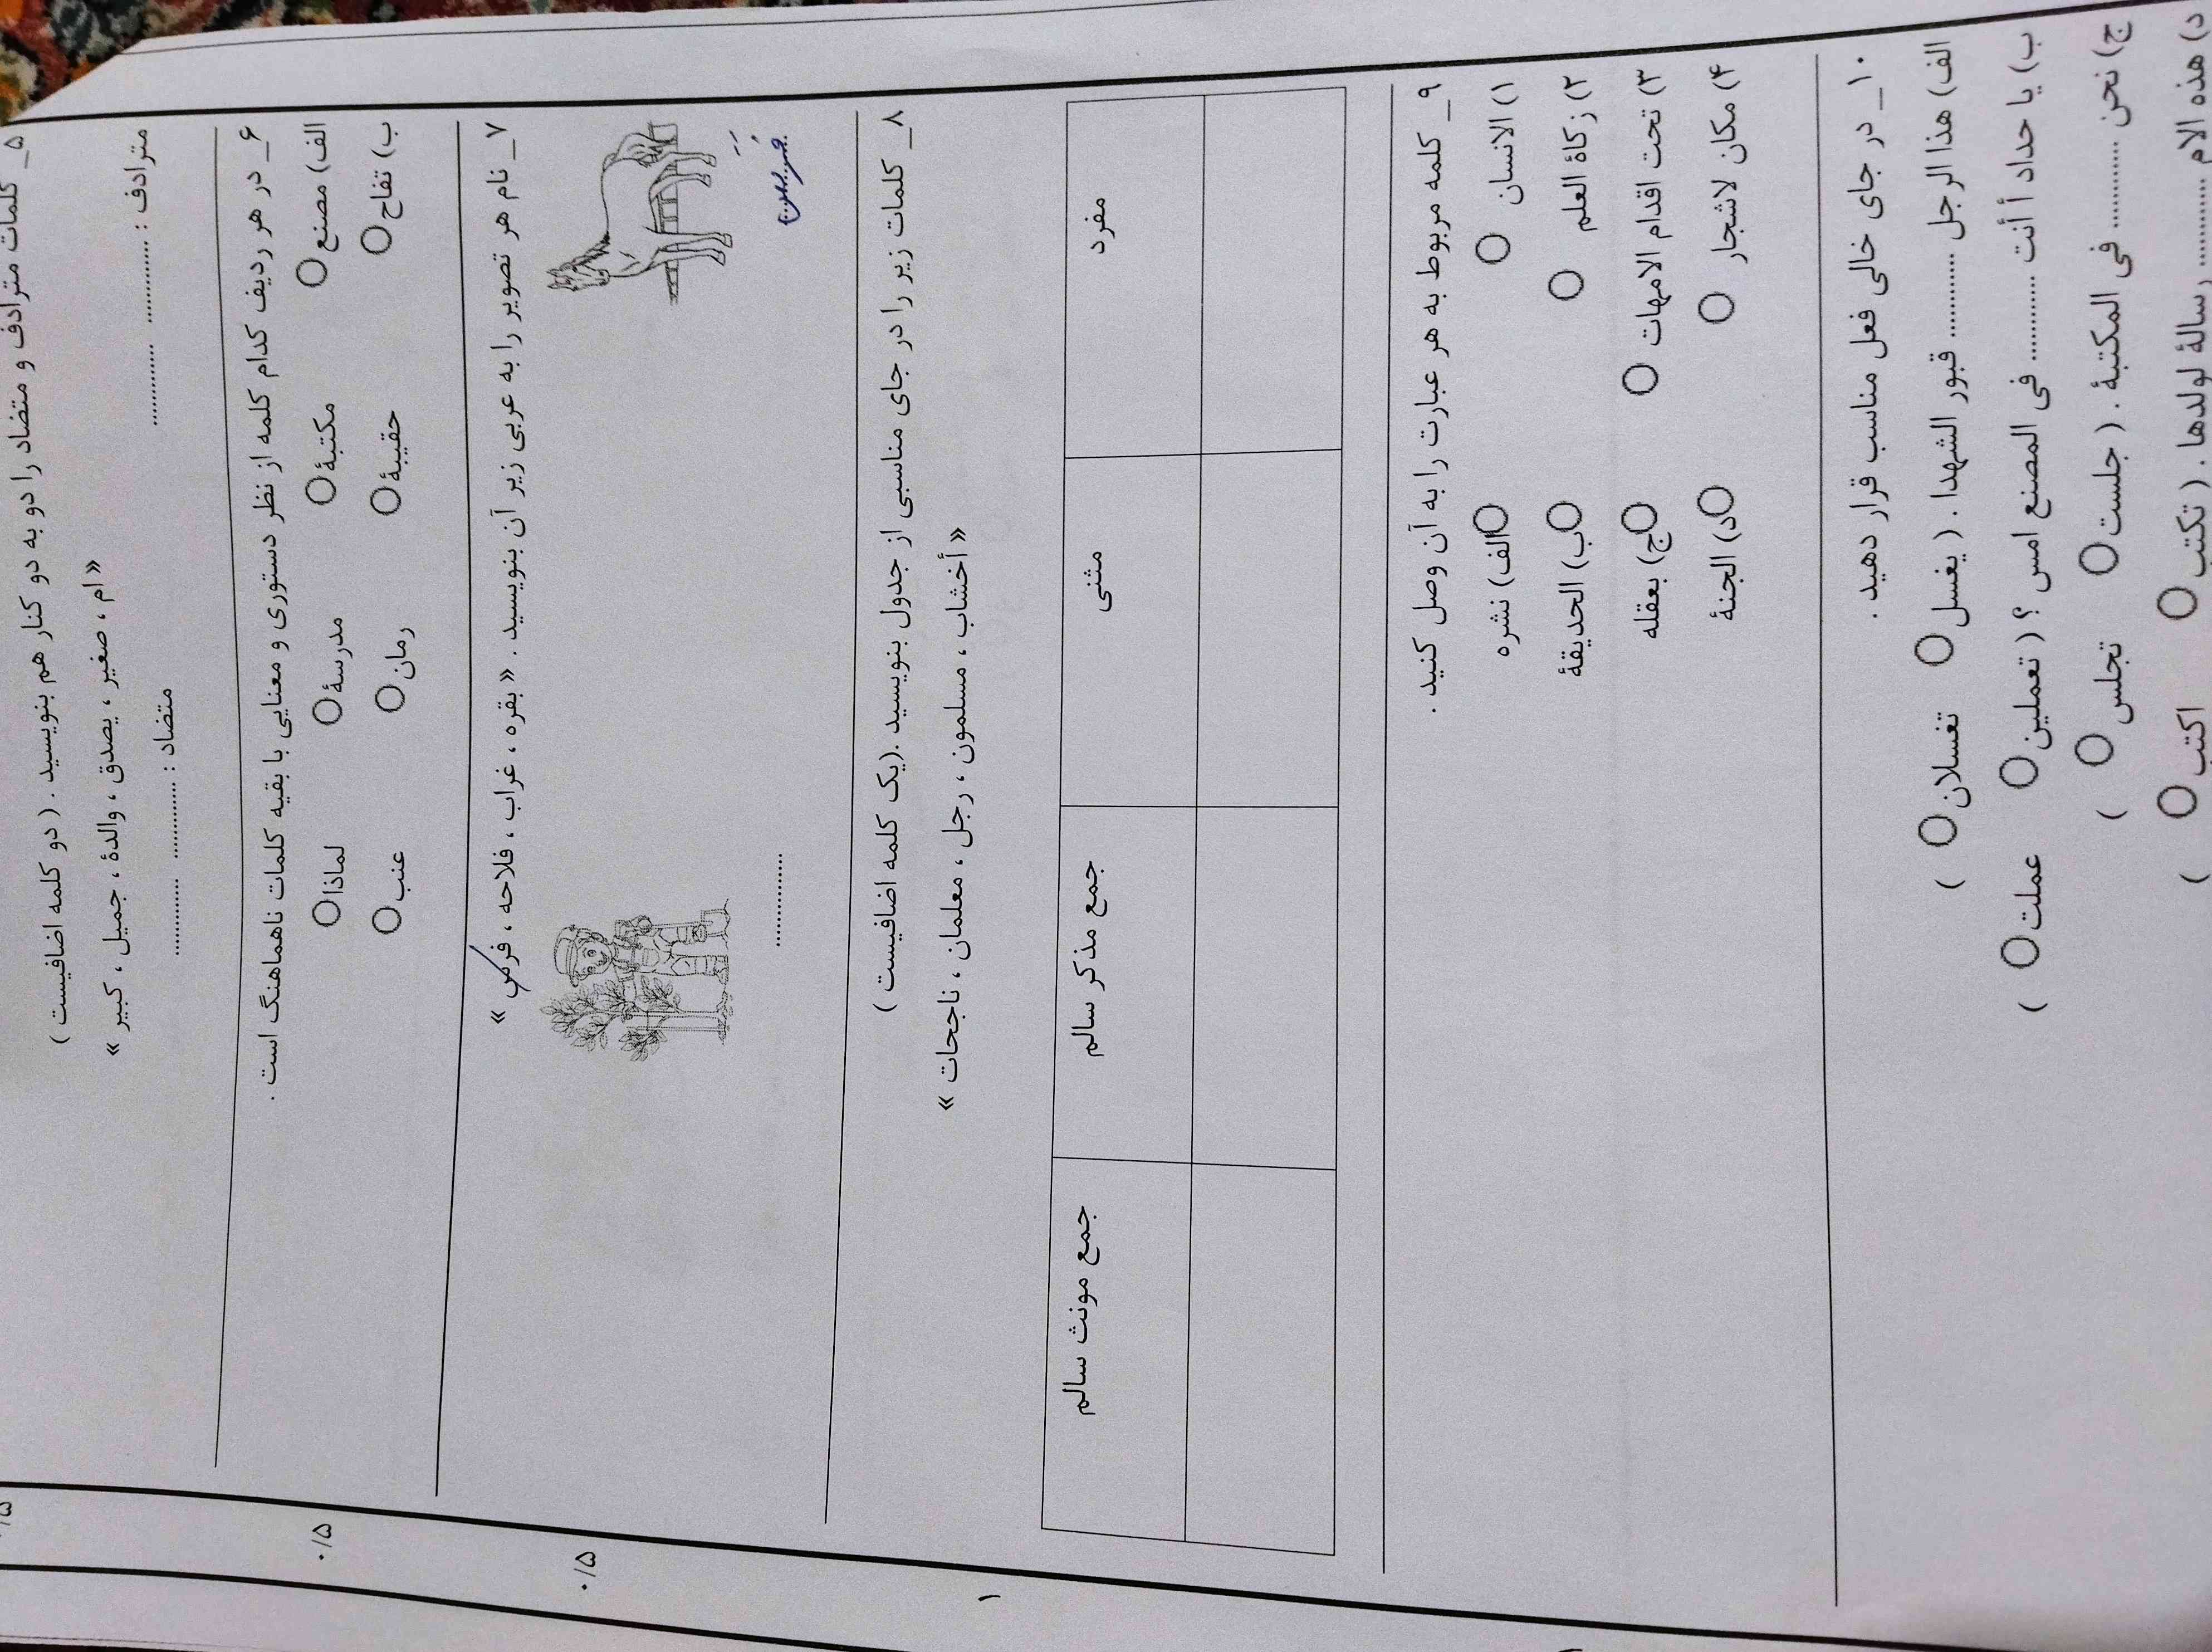 ۵_ کلمات مترادف و متضاد را دو به دو کنار هم بنویسید . ( دو کلمه اضافیست )
« ام ، صغیر ، یصدق ، والدة ، جمیل ، کبیر »
مترادف : ............ ............ متضاد : ............ ............
۰/۵
۶_ در هر ردیف کدام کلمه از نظر دستوری و معنایی با بقیه کلمات ناهماهنگ است .
الف) مصنع مکتبة مدرسة لماذا
ب) تفاح حقیبة رمان عنب
۰/۵
۷_ نام هر تصویر را به عربی زیر آن بنویسید . « بقره ، غراب ، فلاحه ، فرس »
............
۰/۵
۸_ کلمات زیر را در جای مناسبی از جدول بنویسید .(یک کلمه اضافیست )
« أخشاب ، مسلمون ، رجل ، معلمان ، ناجحات »
۱
مفرد مثنی جمع مذکر سالم جمع مونث سالم
۹_ کلمه مربوط به هر عبارت را به آن وصل کنید .
۱) الانسان الف) نشره
۲) زکاة العلم ب) الحدیقة
۳) تحت اقدام الامهات ج) بعقله
۴) مکان لاشجار د) الجنة
۱۰_ در جای خالی فعل مناسب قرار دهید .
الف) هذا الرجل ............ قبور الشهدا . ( یغسل تغسلان )
ب) یا حداد أ أنت ............ فی المصنع امس ؟ ( تعملین عملت )
ج) نحن ............ فی المکتبة . ( جلست تجلس )
د) هذه الام ............ رسالة لولدها . ( تکتب اکتب )